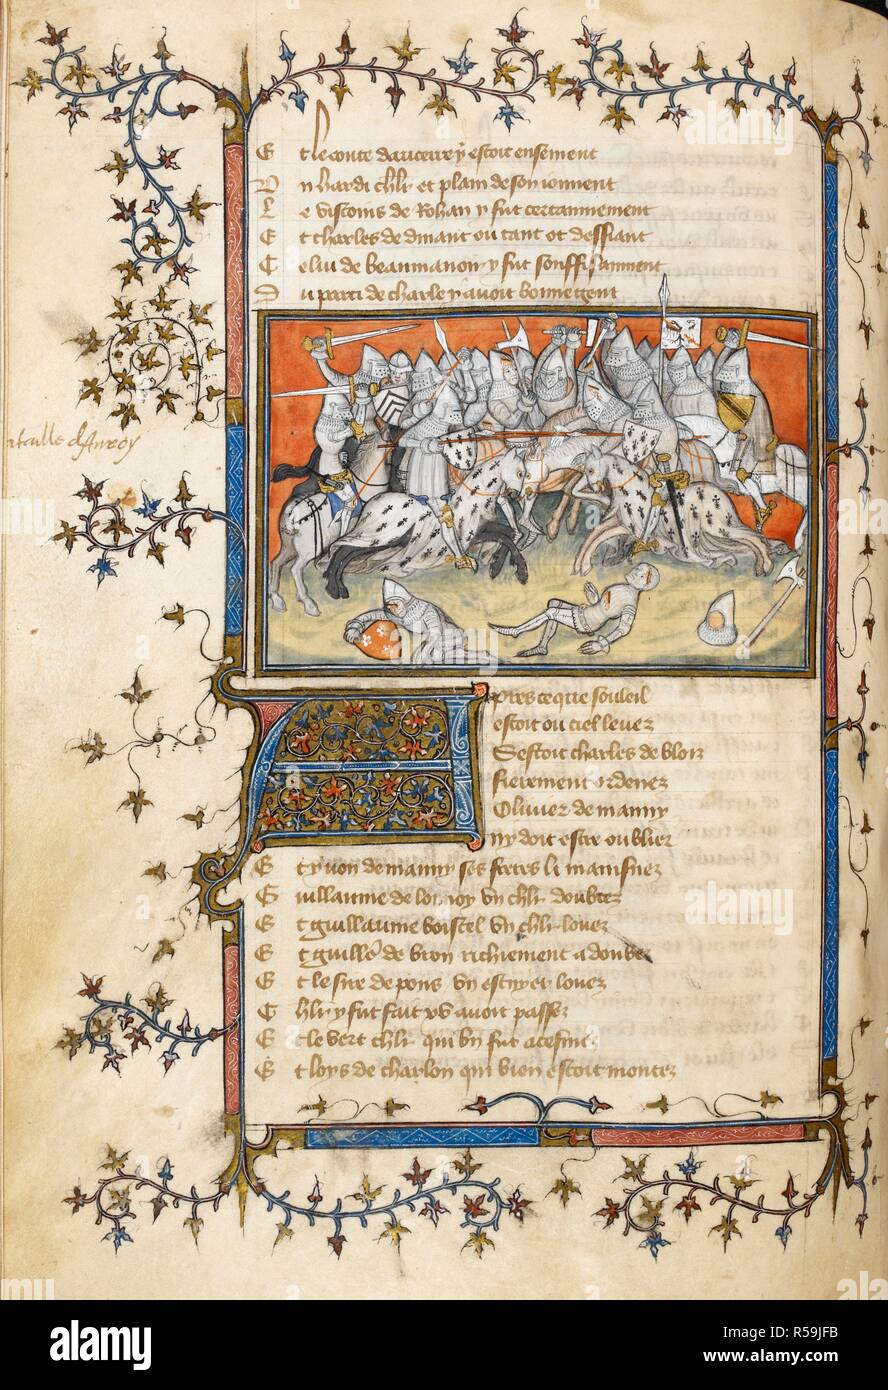 Et le conte daucerre y estoit ensement
Vn hardi chlr et plain de son ionuent
Le visconte de Rohan y fut certainnement
Et charles de dinant ou tant ot deffiant
Celui de beaumanoir y fut souffisanment
Du parti de charle y auoit bonne gent
bataille d'Auroy
Apres ce que souleil
estoit ou ciel leuez
Sestoit charles de blois
fierement ordenez
Oliuier de manny
ny doit estre oubliez
Et yuon de manny ses freres li mainsnez
Guillaume de lonnoy vn chlr doubtez
Et guillaume boistel vn chlr louez
Et guille de bron richiement adoubez
Et le sire de pons vn escuyer louez
Chlr y fut fait xv auoit passez
Et le vert chlr qui bn fut acesmez
Et loys de charlon qui bien estoit montez
alamy
alamy
Image ID: R59JFB
www.alamy.com